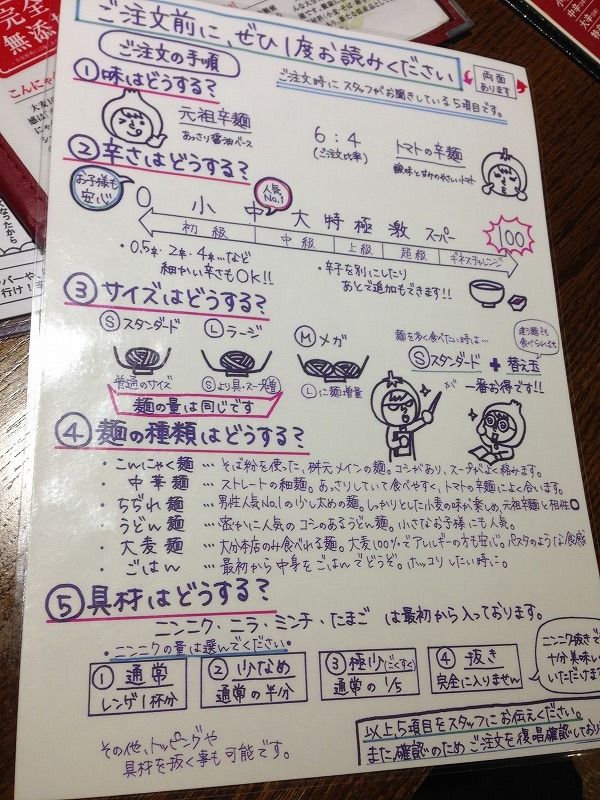 ご注文前に、ぜひ1度お読みください
両面あります
ご注文の手順
ご注文時にスタッフがお聞きしている5項目です。
①味はどうする?
元祖辛麺
あっさり醤油ベース
6:4
(ご注文比率)
トマトの辛麺
酸味と甘みのやさしいトマト
②辛さはどうする?
お子様も安心
人気No.1
0 小 中 大 特 極 激 スーパー 100
初級 中級 上級 超級 ギネスチャレンジ
・0.5辛・2辛・4辛…など
細かい辛さもOK!!
・辛子を別にしたり
あとで追加もできます!!
③サイズはどうする?
Ⓢスタンダード Ⓛラージ Ⓜメガ
普通のサイズ Ⓢより具・スープ増 Ⓛに麺増量
麺の量は同じです
麺を多く食べたい時は…
違う麺も食べられるよ
Ⓢスタンダード + 替え玉
が 一番お得です!!
④麺の種類はどうする?
・こんにゃく麺 … そば粉を使った、桝元メインの麺。コシがあり、スープがよく絡みます。
・中華麺 … ストレートの細麺。あっさりしていて食べやすく、トマトの辛麺によく合います。
・ちぢれ麺 … 男性人気No.1の少し太めの麺。しっかりとした小麦の味が楽しめ、元祖辛麺と相性○
・うどん麺 … 密かに人気のコシのあるうどん麺。小さなお子様にも人気。
・大麦麺 … 大分本店のみ食べれる麺。大麦100%でアレルギーの方も安心。パスタのような食感
・ごはん … 最初から中身をごはんでどうぞ。ホッコリしたい時に。
⑤具材はどうする?
ニンニク・ニラ・ミンチ・たまご は最初から入っております。
・ニンニクの量は選んでください・
①通常
レンゲ1杯分
②少なめ
通常の半分
③極少(ごくすく)
通常の1/5
④抜き
完全に入りません
ニンニク抜きで
十分美味しい
いただけます
その他、トッピングや
具材を抜く事も可能です。
以上5項目をスタッフにお伝えください。
また確認のためご注文を復唱確認しており